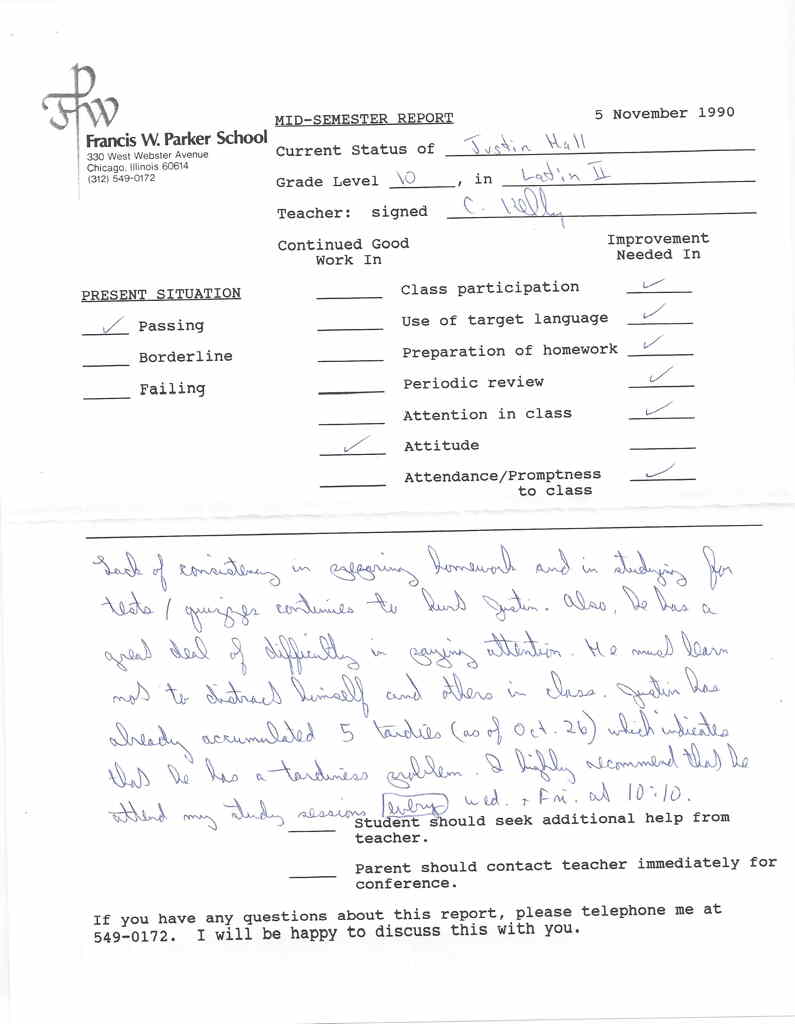 PFW
Francis W. Parker School
330 West Webster Avenue
Chicago, Illinois 60614
(312) 549-0172
MID-SEMESTER REPORT
5 November 1990
Current Status of Justin Hall
Grade Level 10, in Latin II
Teacher: signed C. Kelly
Continued Good Work In
Improvement Needed In
PRESENT SITUATION
✓ Passing
Borderline
Failing
Class participation ✓
Use of target language ✓
Preparation of homework ✓
Periodic review ✓
Attention in class ✓
✓ Attitude
Attendance/Promptness ✓
to class
Lack of consistency in preparing homework and in studying for
tests / quizzes continues to hurt Justin. Also, he has a
great deal of difficulty in paying attention. He must learn
not to distract himself and others in class. Justin has
already accumulated 5 tardies (as of Oct. 26) which indicates
that he has a tardiness problem. I highly recommend that he
attend my study sessions every Wed. + Fri. at 10:10.
Student should seek additional help from
teacher.
Parent should contact teacher immediately for
conference.
If you have any questions about this report, please telephone me at
549-0172. I will be happy to discuss this with you.